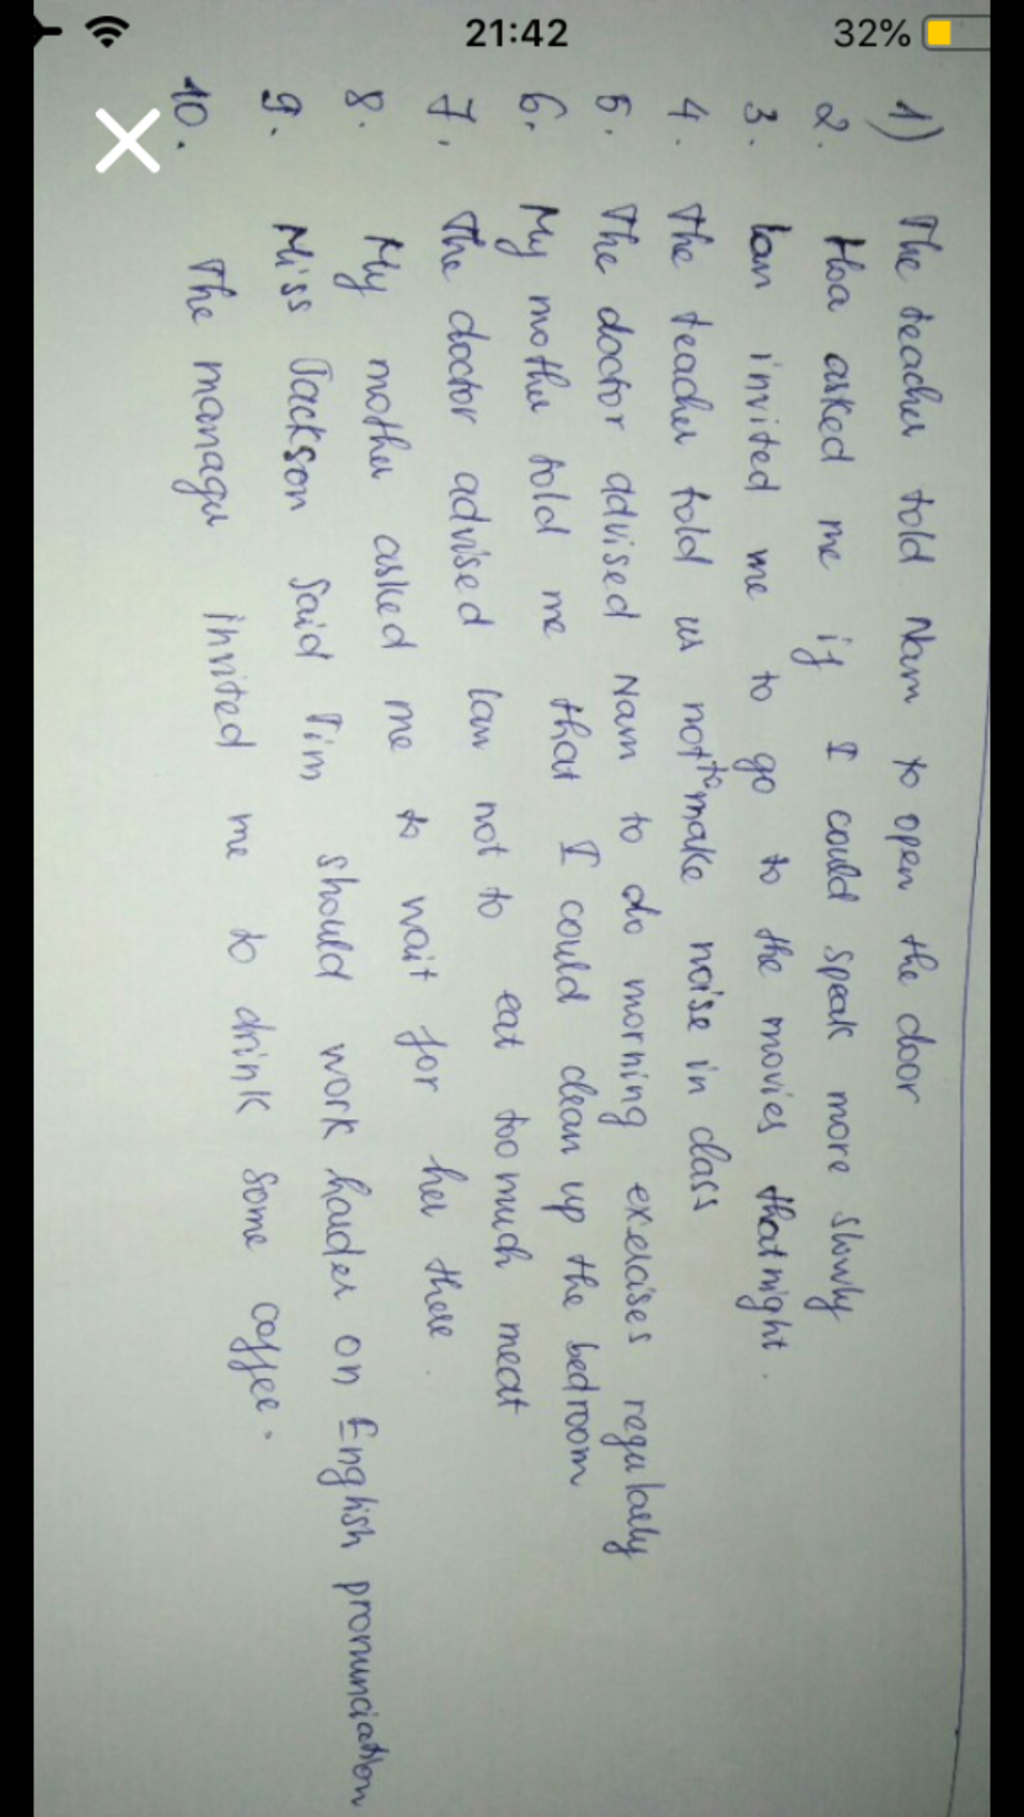 21:42
32%
1) The teacher told Nam to open the door
2. Hoa asked me if I could speak more slowly
3. Lan invited me to go to the movies that night.
4. The teacher told us not to make noise in class
5. The doctor advised Nam to do morning exercises regularly
6. My mother told me that I could clean up the bedroom
7. The doctor advised Lan not to eat too much meat
8. My mother asked me to wait for her there.
9. Miss Jackson said Tim should work harder on English pronunciation
10. The manager invited me to drink some coffee.